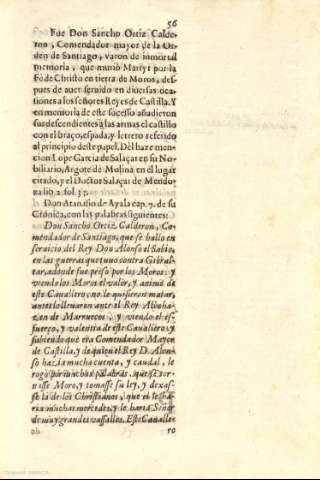 56
Fue Don Sancho Ortiz Calde-
ron, Comendador mayor de la Or-
den de Santiago, varon de inmortal
memoria, que murió Martyr por la
Fè de Christo en tierra de Moros, des-
pues de auer seruido en diuersas oca-
siones a los señores Reyes de Castilla. Y
en memoria de este sucesso añadieron
sus descendientes à las armas el castillo
con el braço, espada, y letrero referido
al principio deste papel. Del haze men-
cion Lope Garcia de Salaçar en su No-
biliario, Argote de Molina en el lugar
citado, y el Doctor Salaçar de Mendo-
ça lib. 2. fol. 37.
Don Atanasio de Ayala cap. 7. de su
Cronica, con las palabras siguientes:
Don Sancho Ortiz Calderon, Co-
mendador de Santiago, que se hallò en
seruicio del Rey Don Alonso el Sabio,
en las guerras que tuuo contra Gibral-
tar, adonde fue preso por los Moros: y
viendo los Moros el valor, y animo de
este Cauallero, no le quisieron matar,
antes lo lleuaron ante el Rey Albohа-
zen de Marruecos, y viendo el es-
fuerço, y valentia de este Cauallero, y
sabiendo que era Comendador Mayor
de Castilla, y de quien el Rey D. Alon-
so hazia mucha cuenta, y caudal, le
rogò por muchas palabras, que se tor-
nasse Moro, y tomasse su ley, y dexas-
se la de los Christianos, que el le ha-
ria muchas mercedes, y le haria Señor
de muy grandes vassallos. Este Caualle-
ro